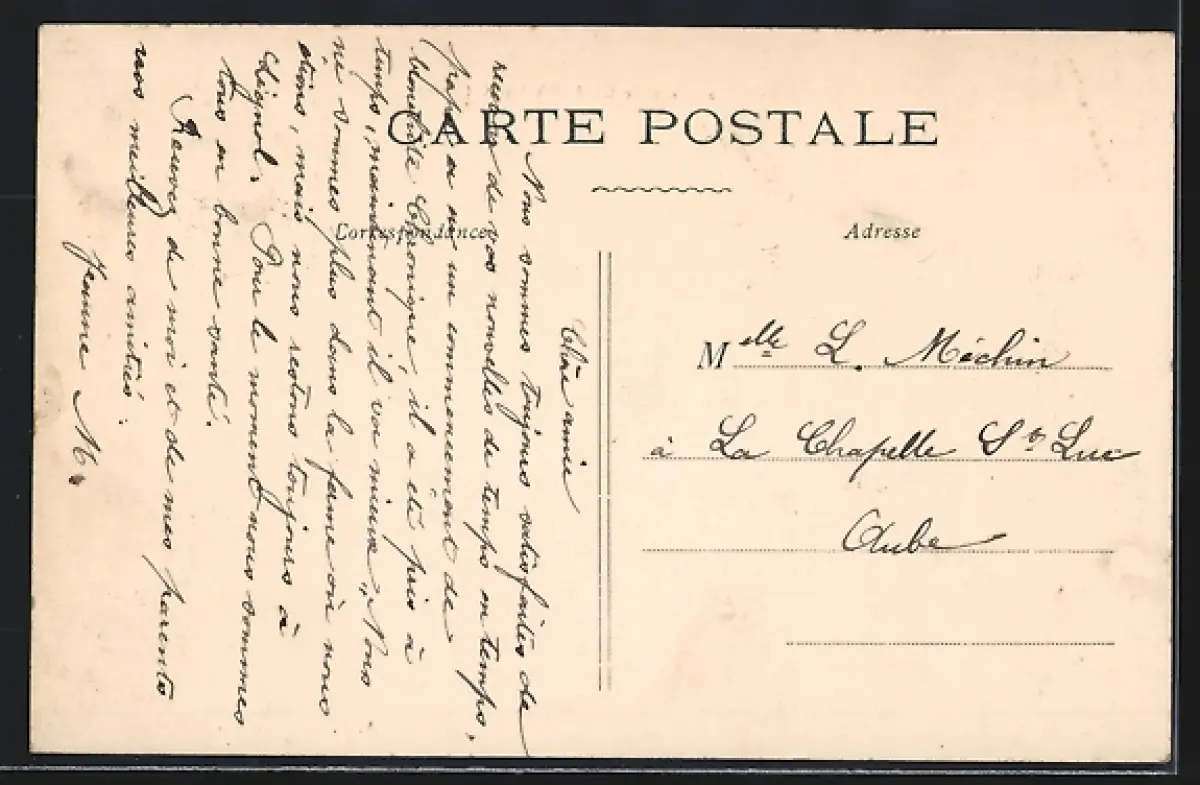 CARTE POSTALE
Correspondance
Adresse
Chère amie
Nous sommes toujours satisfaites de
recevoir de vos nouvelles de temps en temps,
papa a eu un commencement de
bronchite Chronique, il a été pris à
temps, maintenant il va mieux, Nous
ne sommes plus dans la ferme où nous
étions, mais nous restons toujours à
Lignol. Pour le moment nous sommes
tous en bonne santé.
Recevez de moi et de mes parents
nos meilleures amitiés.
Jeanne M.
Melle L. Méchin
à La Chapelle St Luc
Aube